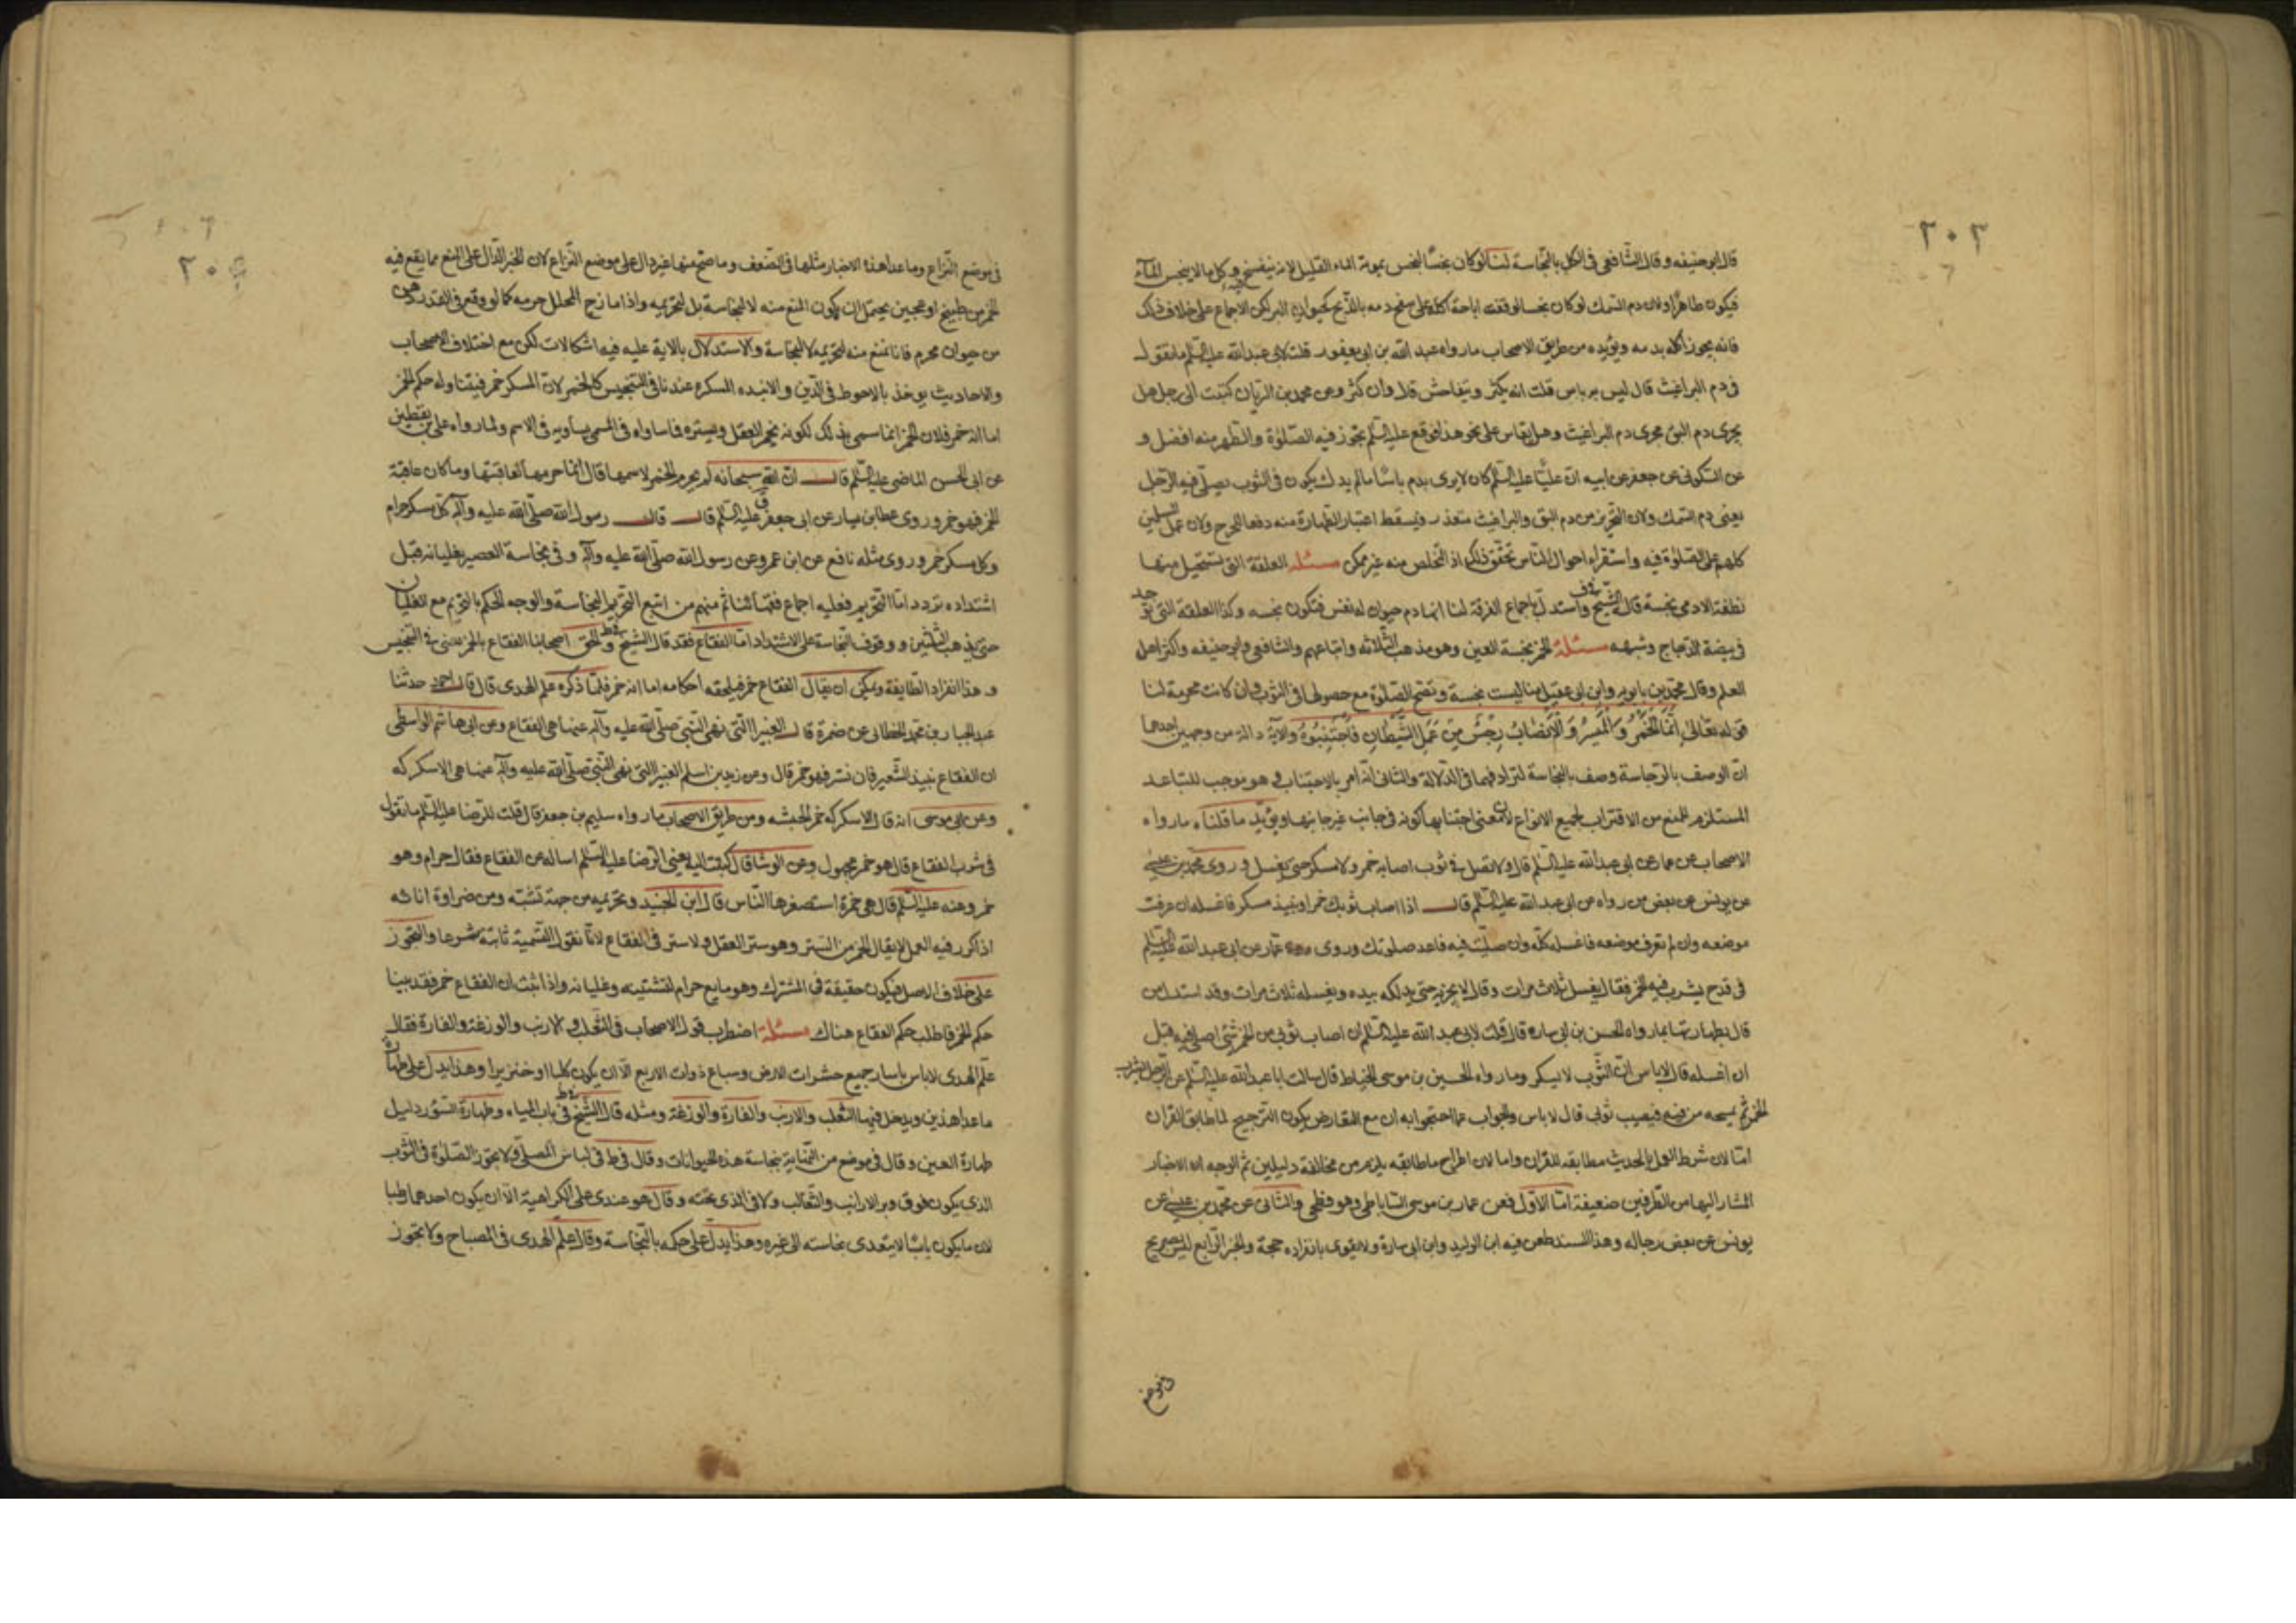 ٢٠٢
قال ابو حنيفه وقال الشافعي في الكل بالنجاسة لنا لو كان نجسا لنجس بموته الماء القليل لانه ينفسخ فيه وكل ما لا ينجس الماء
فيكون طاهرا ولان دم السمك لو كان نجسا لوقفت اباحة اكله على سفح دمه بالذبح كحيوان البر لكن الاجماع على خلاف ذلك
فانه يجوز اكله بدمه ويؤيده من طريق الاصحاب ما رواه عبد الله بن ابي يعفور قلت لابي عبد الله عليه السلم ما تقول
في دم البراغيث قال ليس به باس قلت انه يكثر ويتفاحش قال وان كثر وعن محمد بن الريان كتبت الى رجل هل
يجري دم البق مجرى دم البراغيث وهل يقاس على نحو هذا فوقع عليه السلم تجوز فيه الصلوة والتطهر منه افضل و
عن السكوني عن جعفر عن ابيه ان عليا عليه السلم كان لا يرى بدم باسا ما لم يدك يكون في الثوب يصلي فيه الرجل
يعني دم السمك ولان التحرز من دم البق والبراغيث متعذر فيسقط اعتبار الطهارة منه دفعا للحرج ولان عمل المسلمين
كلهم على الصلوة فيه واستقراء احوال الناس تحقق ذلك اذ التخلص منه غير ممكن مسئلة العلقة التي تستحيل منها
نطفة الادمي نجسة قاله الشيخ في ف واستدل باجماع الفرقة لنا انها دم حيوان له نفس فتكون نجسه وكذا العلقة التي توجد
في بيضة الدجاج وشبهه مسئلة الخمر نجسة العين وهو مذهب الثلاثه واتباعهم والشافعي وابو حنيفه واكثر اهل
العلم وقال محمد بن بابويه وابن ابي عقيل منا ليست نجسة وتصح الصلوة مع حصولها في الثوب وان كانت محرمة لنا
قوله تعالى انما الخمر والميسر والانصاب رجس من عمل الشيطان فاجتنبوه والاية دالة من وجهين احدهما
ان الوصف بالرجاسة وصف بالنجاسة لترادفهما في الدلالة والثاني انه امر بالاجتناب وهو موجب للتباعد
المستلزم للمنع من الاقتراب لجميع الانواع لان معنى اجتنابها كونه في جانب غير جانبها ويؤيد ما قلناه ما رواه
الاصحاب عن عمار عن ابي عبد الله عليه السلم قال ولا تصل في ثوب اصابه خمر ولا مسكر حتى يغسل وروى محمد بن عيسى
عن يونس عن بعض من رواه عن ابي عبد الله عليه السلم قال اذا اصاب ثوبك خمر او نبيذ مسكر فاغسله ان عرفت
موضعه وان لم تعرف موضعه فاغسله كله وان صليت فيه فاعد صلوتك وروى عمار عن ابي عبد الله عليه السلم
في قدح يشرب فيه الخمر فقال يغسل ثلاث مرات وقال لا يجزيه حتى يدلكه بيده ويغسله ثلاث مرات وقد استدل من
قال بطهارتها بما رواه الحسن بن ابي ساره قال قلت لابي عبد الله عليه السلم ان اصاب ثوبي من الخمر شيء اصلي فيه قبل
ان اغسله قال لا باس ان الثوب لا يسكر وما رواه الحسين بن موسى الخياط قال سالت ابا عبد الله عليه السلم عن الرجل يشرب
الخمر ثم يمجه من فيه فيصيب ثوبي قال لا باس والجواب عما احتجوا به ان مع التعارض يكون الترجيح لما طابق القران
اما لان شرط العمل بالحديث مطابقه للقران واما لان اطراح ما طابقه يلزم من مخالفة دليلين ثم الوجه ان الاخبار
المشار اليها من الطرفين ضعيفة اما الاول فعن عمار بن موسى الساباطي وهو فطحي والثاني عن محمد بن عيسى عن
يونس عن بعض رجاله وهذا السند طعن فيه ابن الوليد وابن ابي سارة ولا يقوى بانفراده حجة والخبر الرابع ليس بصريح
في موضع
في موضع النزاع وما عدا هذه الاخبار مثلها في الضعف وما صح منها غير دال على موضع النزاع لان الخبر الدال على المنع مما يقع فيه
الخمر من طبيخ او عجين يحتمل ان يكون المنع منه لا لنجاسة بل لتحريمه واذا مازج المحلل حرمه كما لو وقع في القدر دهن
من حيوان محرم فانا نمنع منه لتحريمه لا لنجاسة والاستدلال بالاية عليه فيه اشكالات لكن مع اختلاف الاصحاب
والاحاديث يوخذ بالاحوط في الدين والانبذه المسكره عندنا في التنجيس كالخمر لان المسكر خمر فيتناوله حكم الخمر
اما انه خمر فلان الخمر انما سمي بذلك لكونه يخمر العقل ويستره فما ساواه في المسمى يساويه في الاسم ولما رواه علي بن يقطين
عن ابي الحسن الماضي عليه السلم قال ان الله سبحانه لم يحرم الخمر لاسمها قال انما حرمها لعاقبتها وما كان عاقبته
الخمر فهو خمر وروى عطا بن يسار عن ابي جعفر عليه السلم قال قال رسول الله صلى الله عليه وآله كل مسكر حرام
وكل مسكر خمر وروى مثله نافع عن ابن عمر وعن رسول الله صلى الله عليه وآله وفي نجاسة العصير بغليانه قبل
اشتداده تردد اما التحريم فعليه اجماع فقهائنا ثم منهم من اتبع التحريم النجاسة والوجه الحكم بالتحريم مع الغليان
حتى يذهب الثلثين ووقوف النجاسة على الاشتداد اما الفقاع فقد قال الشيخ في ط والحق اصحابنا الفقاع بالخمر يعني في التنجيس
وهذا انفراد الطايفة ويمكن ان يقال الفقاع خمر فيلحقه احكامه اما انه خمر فلما ذكره علم الهدى قال قال احمد حدثنا
عبد الجبار بن محمد الخطابي عن ضمرة قال الغبيرا التي نهى النبي صلى الله عليه وآله عنها هي الفقاع وعن ابي هاشم الواسطي
ان الفقاع نبيذ الشعير فان نش فهو خمر قال وعن زيد بن اسلم الغبيرا التي نهى النبي صلى الله عليه وآله عنها هي الاسكركه
وعن ابي موسى انه قال الاسكركه خمر الحبشه ومن طريق الاصحاب ما رواه سليم بن جعفر قال قلت للرضا عليه السلم ما تقول
في شرب الفقاع قال هو خمر مجهول وعن الوشا قال كتبت اليه يعني الرضا عليه السلم اساله عن الفقاع فقال حرام وهو
خمر وعنه عليه السلم قال هي خمرة استصغرها الناس قال ابن الجنيد وتحريمه من جهة نشيشه ومن ضراوة انائه
اذا كرر فيه العمل لا يقال الخمر من الستر وهو ستر العقل ولا ستر في الفقاع لانا نقول التسمية ثابتة شرعا والتجوز
على خلاف الاصل فيكون حقيقة في المشترك وهو مايع حرام لنشيشه وغليانه واذا ثبت ان الفقاع خمر فقد بينا
حكم الخمر فاطلب حكم الفقاع هناك مسئلة اضطرب قول الاصحاب في الثعلب والارنب والوزغة والفارة فقال
علم الهدى لا باس باسار جميع حشرات الارض وسباع ذوات الاربع الا ان يكون كلبا او خنزيرا وهذا يدل على طهارة
ما عدا هذين ويدخل فيها الثعلب والارنب والفارة والوزغة ومثله قال الشيخ في ط في باب المياه وطهارة السؤر دليل
طهارة العين وقال في موضع من النهاية بنجاسة هذه الحيوانات وقال في ط في لباس المصلي ولا تجوز الصلوة في الثوب
الذي يكون فوق وبر الارانب والثعالب ولا في الذي تحته وقال هو عندي على الكراهية الا ان يكون احدهما رطبا
لان ما يكون يابسا لا يتعدى نجاسته الى غيره وهذا يدل على حكمه بالنجاسة وقال علم الهدى في المصباح ولا تجوز